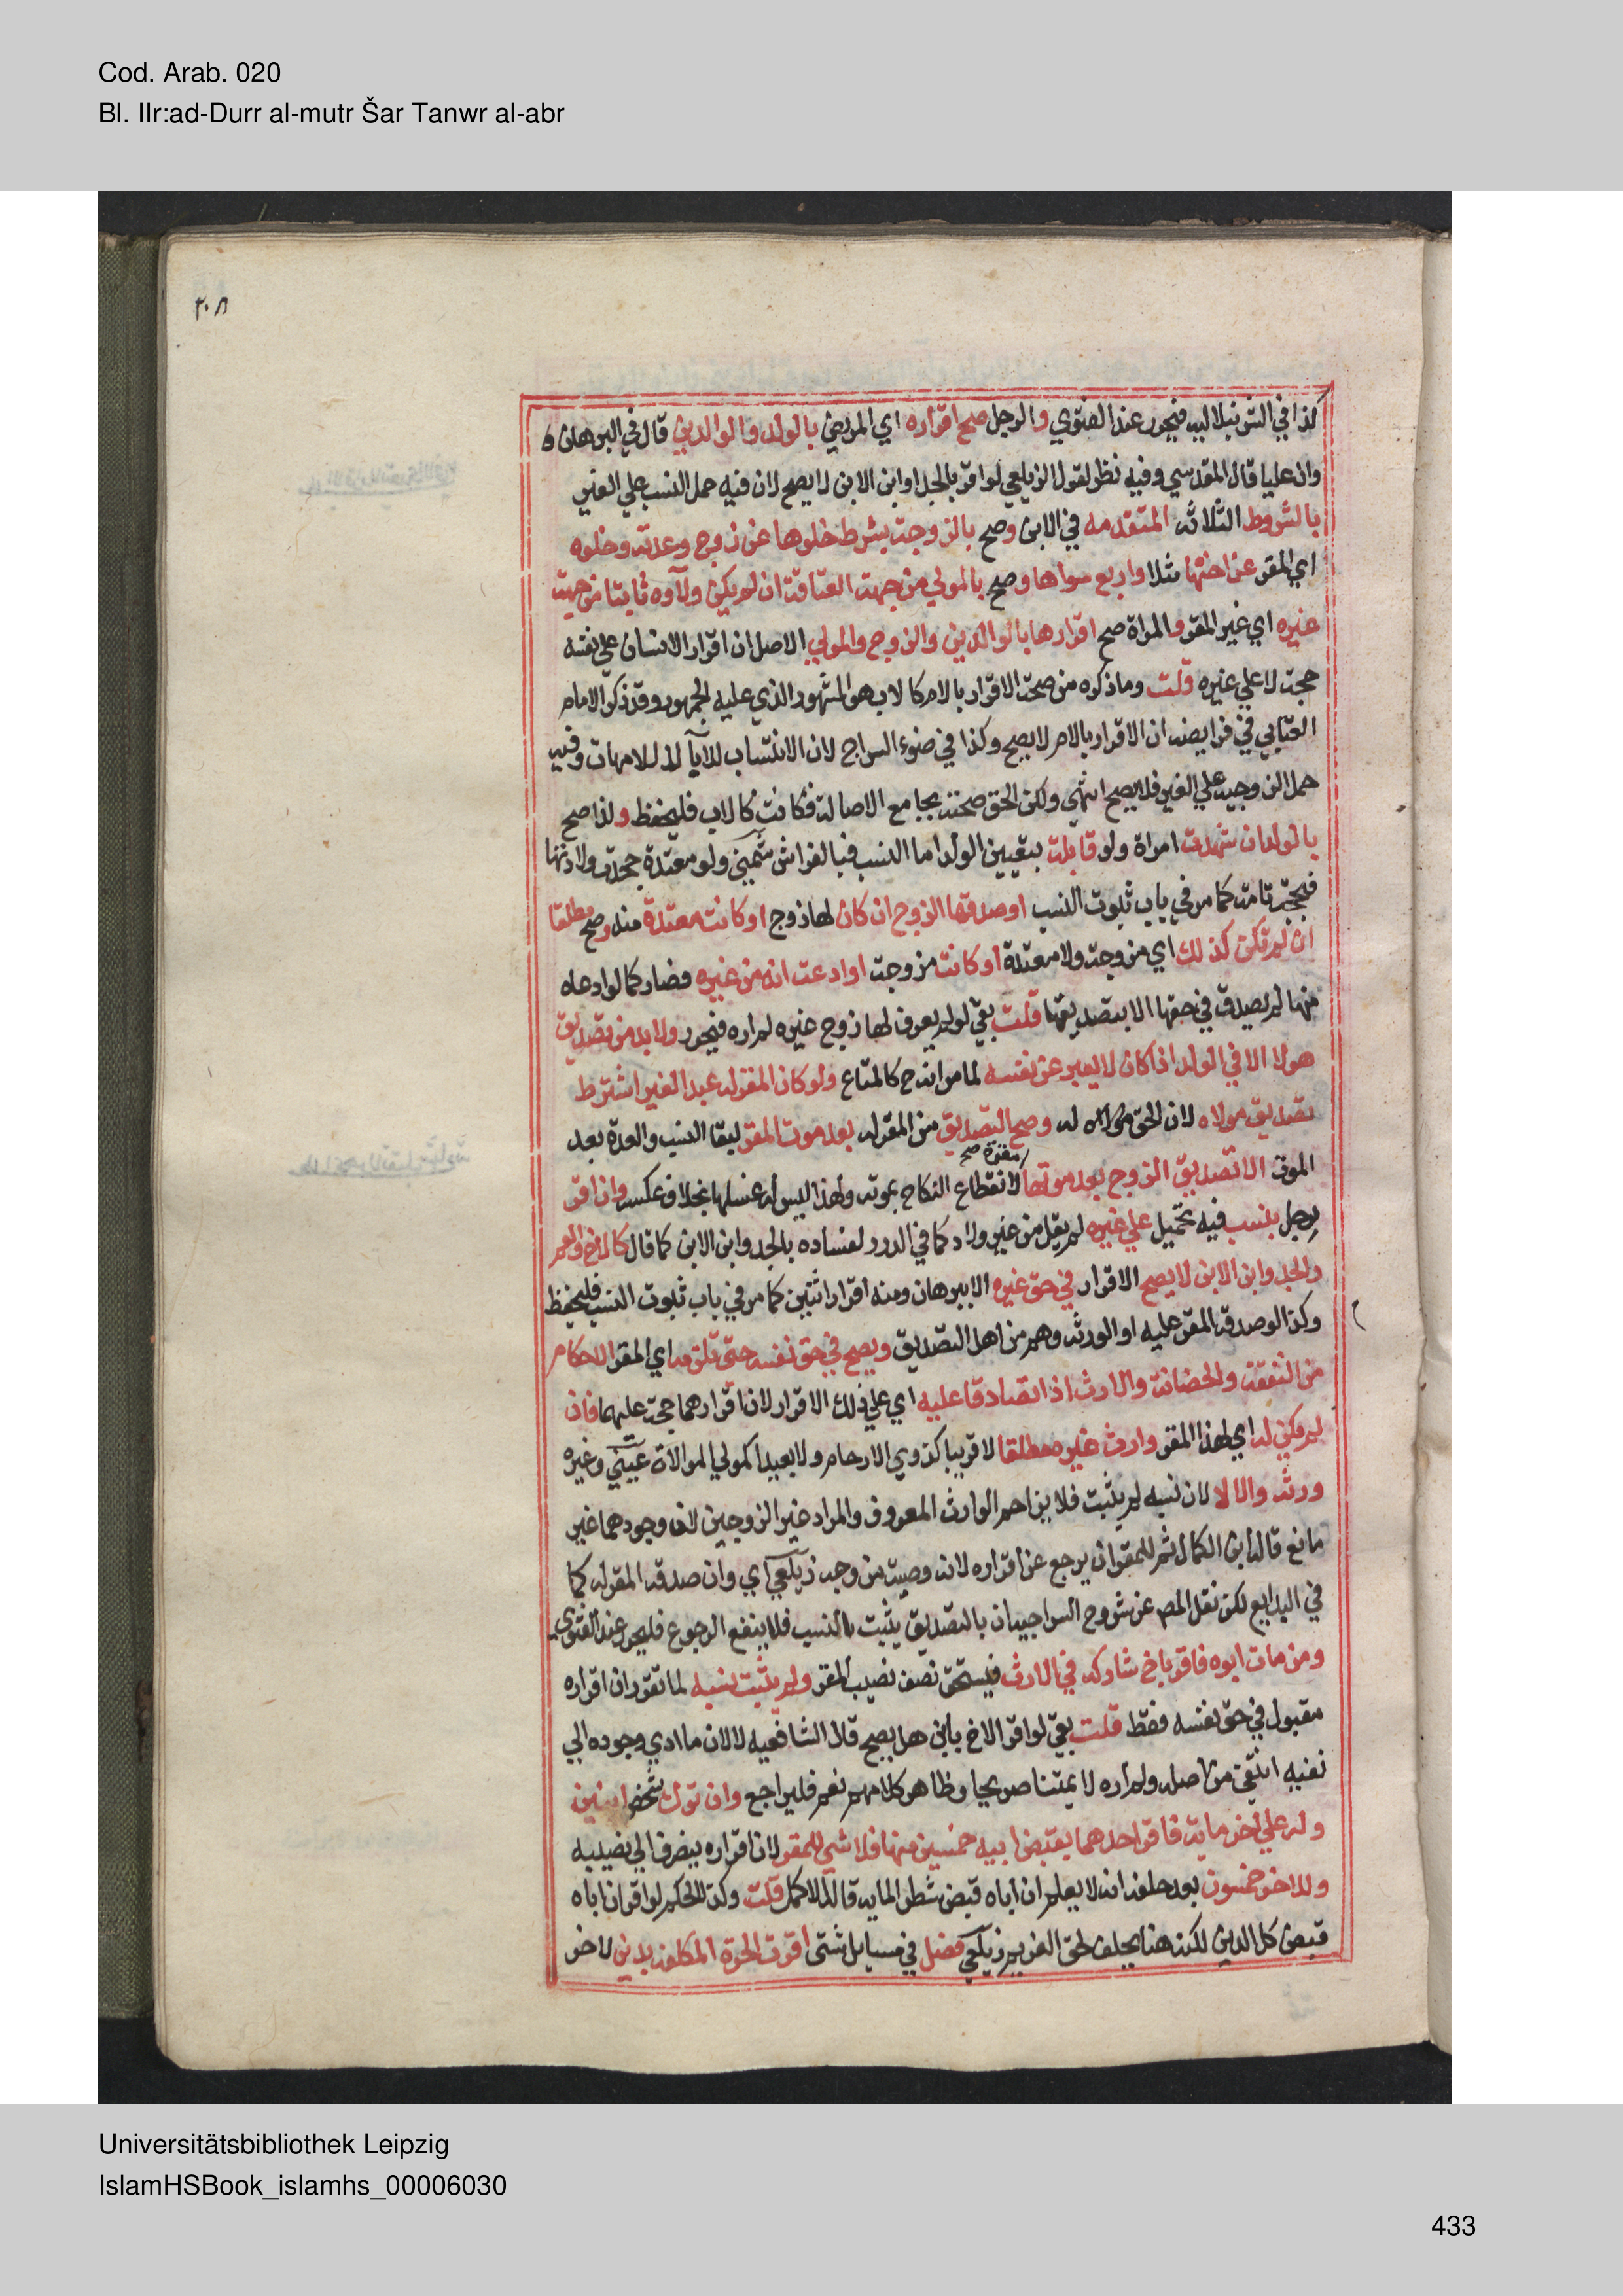 Cod. Arab. 020
Bl. IIr:ad-Durr al-mutr Šar Tanwr al-abr
٢٠٨
كذا في الشرنبلاليه فيحرر عند الفتوي والرجل صح اقراره اي المريض بالولد والوالدين قال في البرهان
وان عليا قال المقدسي وفيه نظر لقول الزيلعي لو اقر بالجد او ابن الابن لا يصح لان فيه حمل النسب علي الغير
بالشروط الثلاثه المتقدمه في الابن وصح بالزوجة بشرط خلوها عن زوج وعدته وخلوه
اي المقر عن اختها مثلا واربع سواها وصح بالمولي من جهة العتاقة ان لم يكن ولاوه ثابتا من جهة
غيره اي غير المقر والمراة صح اقرارها بالوالدين والزوج والمولي الاصل ان اقرار الانسان علي نفسه
حجة لا علي غيره قلت وما ذكره من صحة الاقرار بالام كالاب هو المشهور الذي عليه الجمهور وقد ذكر الامام
العتابي في فرايضه ان الاقرار بالام لا يصح وكذا في ضوء السراج لان الانتساب للابآ لا للامهات وفيه
حمل الزوجية علي الغير فلا يصح انتهي ولكن الحق صحته بجامع الاصالة فكانت كالاب فليحفظ ولذا صح
بالولد ان شهدت امراة ولو قابلة بتعيين الولد اما النسب فبالفراش شمني ولو معتدة جحدت ولادتها
فبحجة تامة كما مر في باب ثبوت النسب او صدقها الزوج ان كان لها زوج او كانت معتدة منه وصح مطلقا
ان لم تكن كذلك اي مزوجة ولا معتدة او كانت مزوجة او ادعت انه من غيره فصار كما لو ادعاه
منها لم يصدق في حقها الا بتصديقها قلت بقي لو لم يعرف لها زوج غيره لم اره فيحرر ولا بد من تصديق
هولا الا في الولد اذا كان لا يعبر عن نفسه لما مر انه ح كالمتاع ولو كان المقر له عبد الغير اشترط
تصديق مولاه لان الحق له وصح التصديق من المقر له بعد موت المقر لبقا النسب والعدة بعد
الموت الا تصديق الزوج بعد موتها مقرة صح لانقطاع النكاح بموته ولهذا ليس له غسلها بخلاف عكسه وان اقر
رجل بنسب فيه تحميل علي غيره لم يقل من غير ولاد كما في الدرر لفساده بالجد وابن الابن كما قال كالاخ والعم
والجد وابن الابن لا يصح الاقرار في حق غيره الا ببرهان ومنه اقرار اثنين كما مر في باب ثبوت النسب فليحفظ
وكذا لو صدقه المقر عليه او الورثه وهم من اهل التصديق ويصح في حق نفسه حتي تلزمه اي المقر الاحكام
من النفقة والحضانة والارث اذا تصادقا عليه اي علي ذلك الاقرار لان اقرارهما حجة عليهما فان
لم يكن له اي لهذا المقر وارث غيره مطلقا لا قريبا كذوي الارحام ولا بعيدا كمولي الموالات عيني وغيره
ورثه والا لا لان نسبه لم يثبت فلا يزاحم الوارث المعروف والمراد غير الزوجين لان وجودهما غير
مانع قاله ابن الكمال ثم للمقر ان يرجع عن اقراره لانه وصية من وجه زيلعي اي وان صدقه المقر له كما
في البدايع لكن نقل المص عن شروح السراجيه ان بالتصديق يثبت النسب فلا ينفع الرجوع فليحرر عند الفتوي
ومن مات ابوه فاقر باخ شاركه في الارث فيستحق نصف نصيب المقر ولم يثبت نسبه لما تقرر ان اقراره
مقبول في حق نفسه فقط قلت بقي لو اقر الاخ بابن هل يصح قال الشافعيه لا لان ما ادي وجوده الي
نفيه انتفي من اصله ولم اره لايمتنا صريحا وظاهر كلامهم نعم فليراجع وان ترك شخص ابنين
وله علي اخر ماية فاقر احدهما بقبض ابيه خمسين منها فلا شي للمقر لان اقراره ينصرف الي نصيبه
وللاخر خمسون بعد حلفه انه لا يعلم ان اباه قبض شطر المايه قاله الاكمل قلت وكذا الحكم لو اقر ان اباه
قبض كل الدين لكنه هنا يحلف لحق الغريم زيلعي فصل في مسايل شتي اقرت الحرة المكلفه بدين لاخر
Universitätsbibliothek Leipzig
IslamHSBook_islamhs_00006030
433